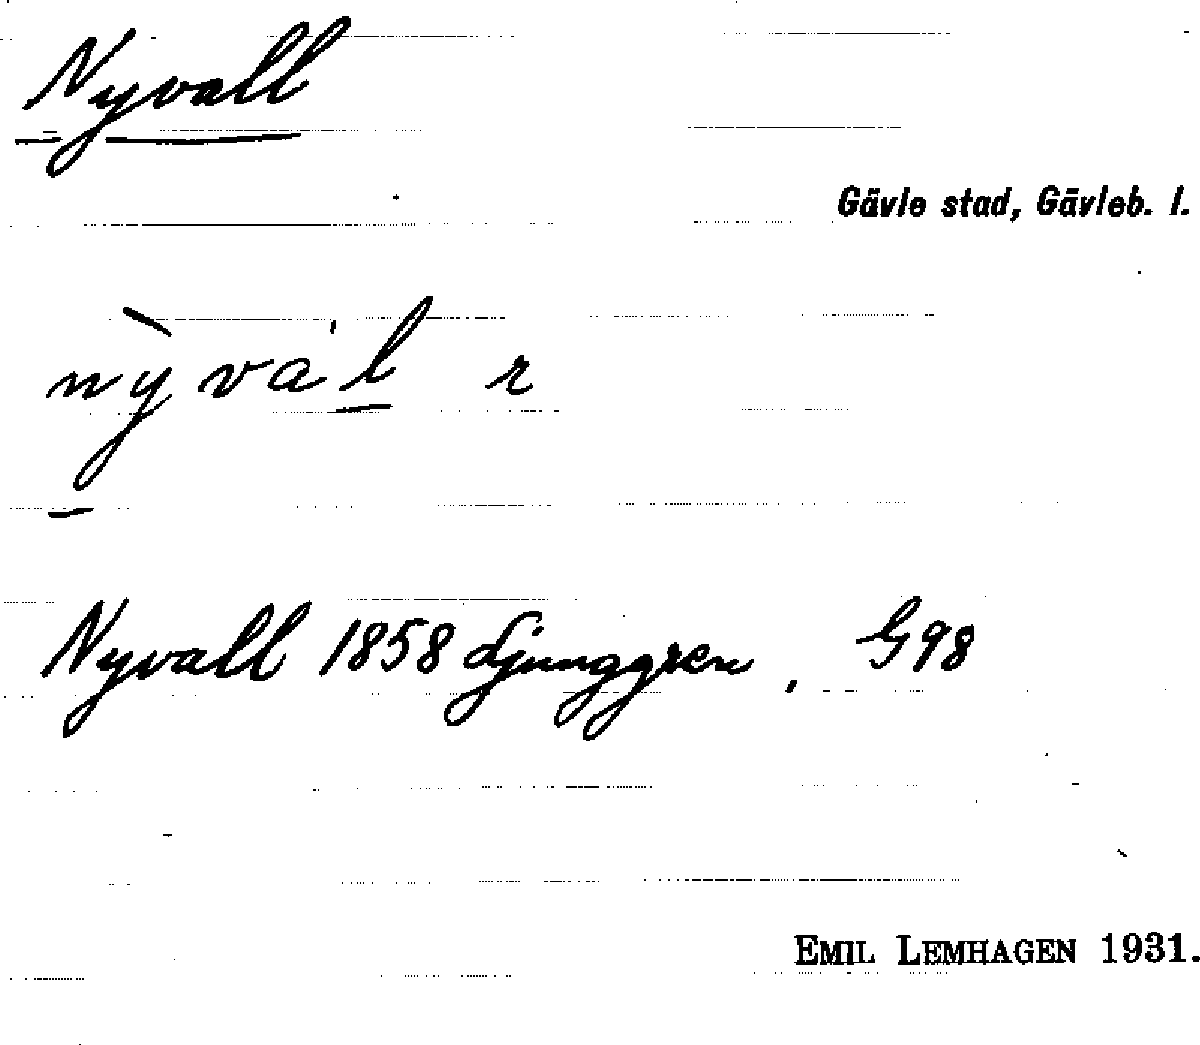 Nyvall
Gävle stad, Gävleb. l.
nỳva'l r
Nyvall 1858 Ljunggren, G98
EMIL LEMHAGEN 1931.